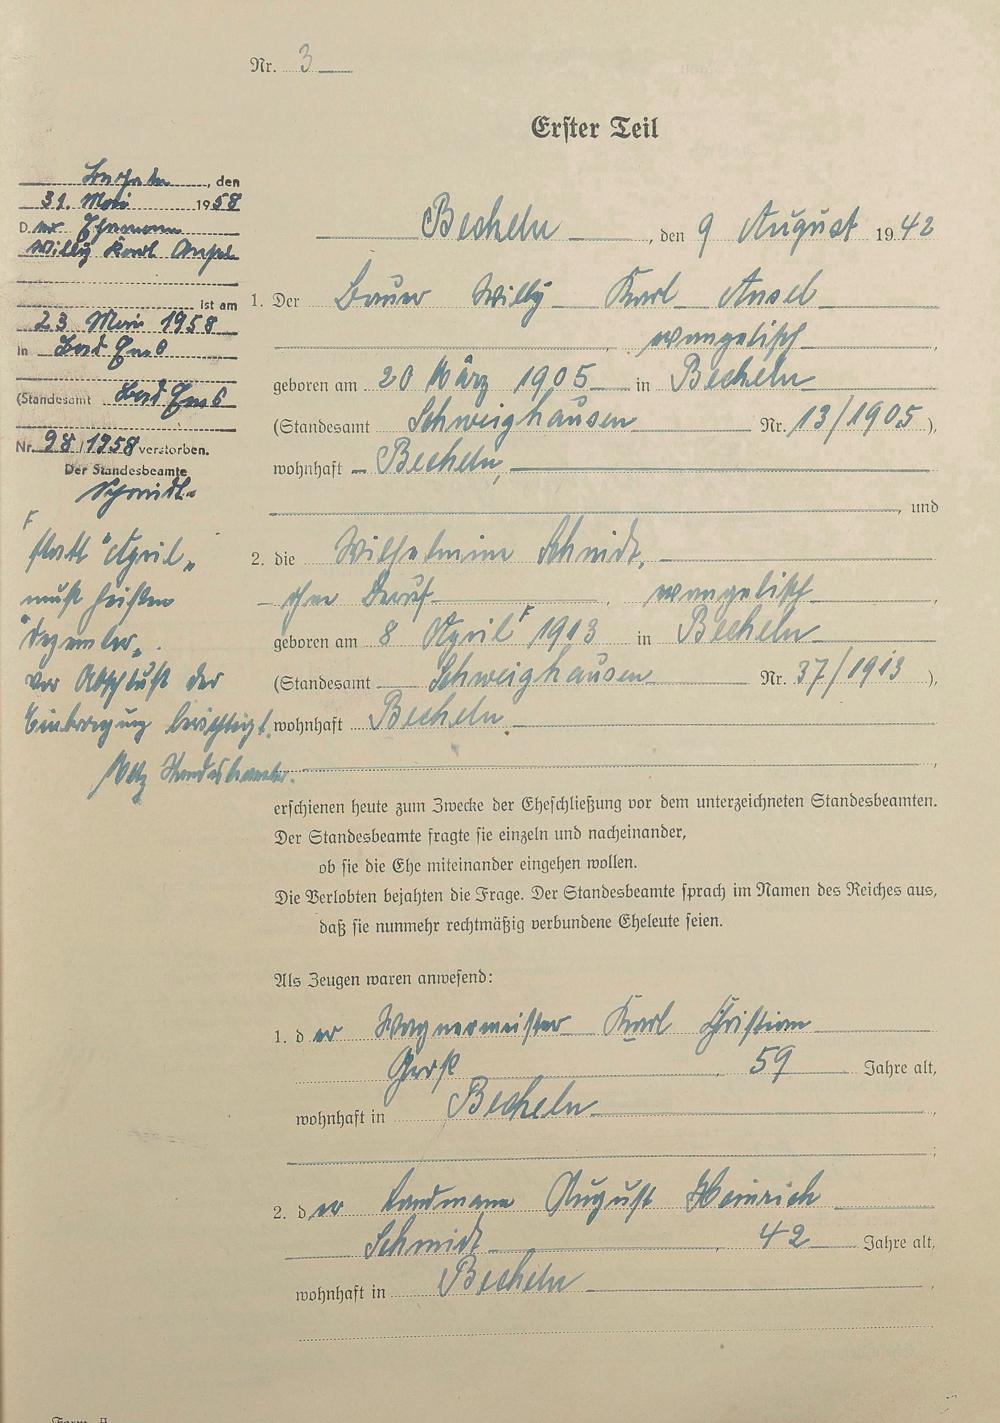 Nr. 3
Erster Teil
Becheln, den 9 August 1942
1. Der Bauer Willy Karl Ansel
, evangelisch,
geboren am 20 März 1905 in Becheln
(Standesamt Schweighausen Nr. 13/1905),
wohnhaft Becheln,
, und
2. die Wilhelmine Schmidt,
ohne Beruf, evangelisch,
geboren am 8 April F 1913 in Becheln
(Standesamt Schweighausen Nr. 37/1913),
wohnhaft Becheln
,
erschienen heute zum Zwecke der Eheschließung vor dem unterzeichneten Standesbeamten.
Der Standesbeamte fragte sie einzeln und nacheinander,
ob sie die Ehe miteinander eingehen wollen.
Die Verlobten bejahten die Frage. Der Standesbeamte sprach im Namen des Reiches aus,
daß sie nunmehr rechtmäßig verbundene Eheleute seien.
Als Zeugen waren anwesend:
1. der Wagnermeister Karl Christian
Groß, 59 Jahre alt,
wohnhaft in Becheln,
;
2. der Landmann August Heinrich
Schmidt, 42 Jahre alt,
wohnhaft in Becheln,
Becheln, den
31. Mai 1958
Der Ehemann
Willy Karl Ansel
ist am
23 Mai 1958
in Bad Ems
(Standesamt Bad Ems
Nr. 98/1958 verstorben.
Der Standesbeamte
Schmidt
F
statt "April"
muß heißen
"Dezember".
Vor Abschluß der
Eintragung berichtigt.
Standesbeamter.
Form. A